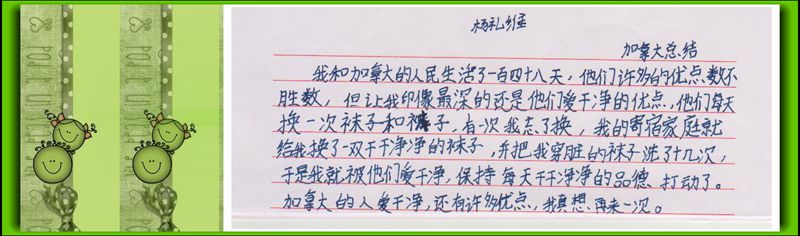 杨礼维
加拿大总结
我和加拿大的人民生活了一百四十八天，他们许多的优点数不
胜数，但让我印像最深的还是他们爱干净的优点，他们每天
换一次袜子和裤子，有一次我忘了换，我的寄宿家庭就
给我换了一双干干净净的袜子，并把我穿脏的袜子洗了十几次，
于是我就被他们爱干净，保持每天干干净净的品德、打动了。
加拿大的人爱干净，还有许多优点，我真想再来一次。